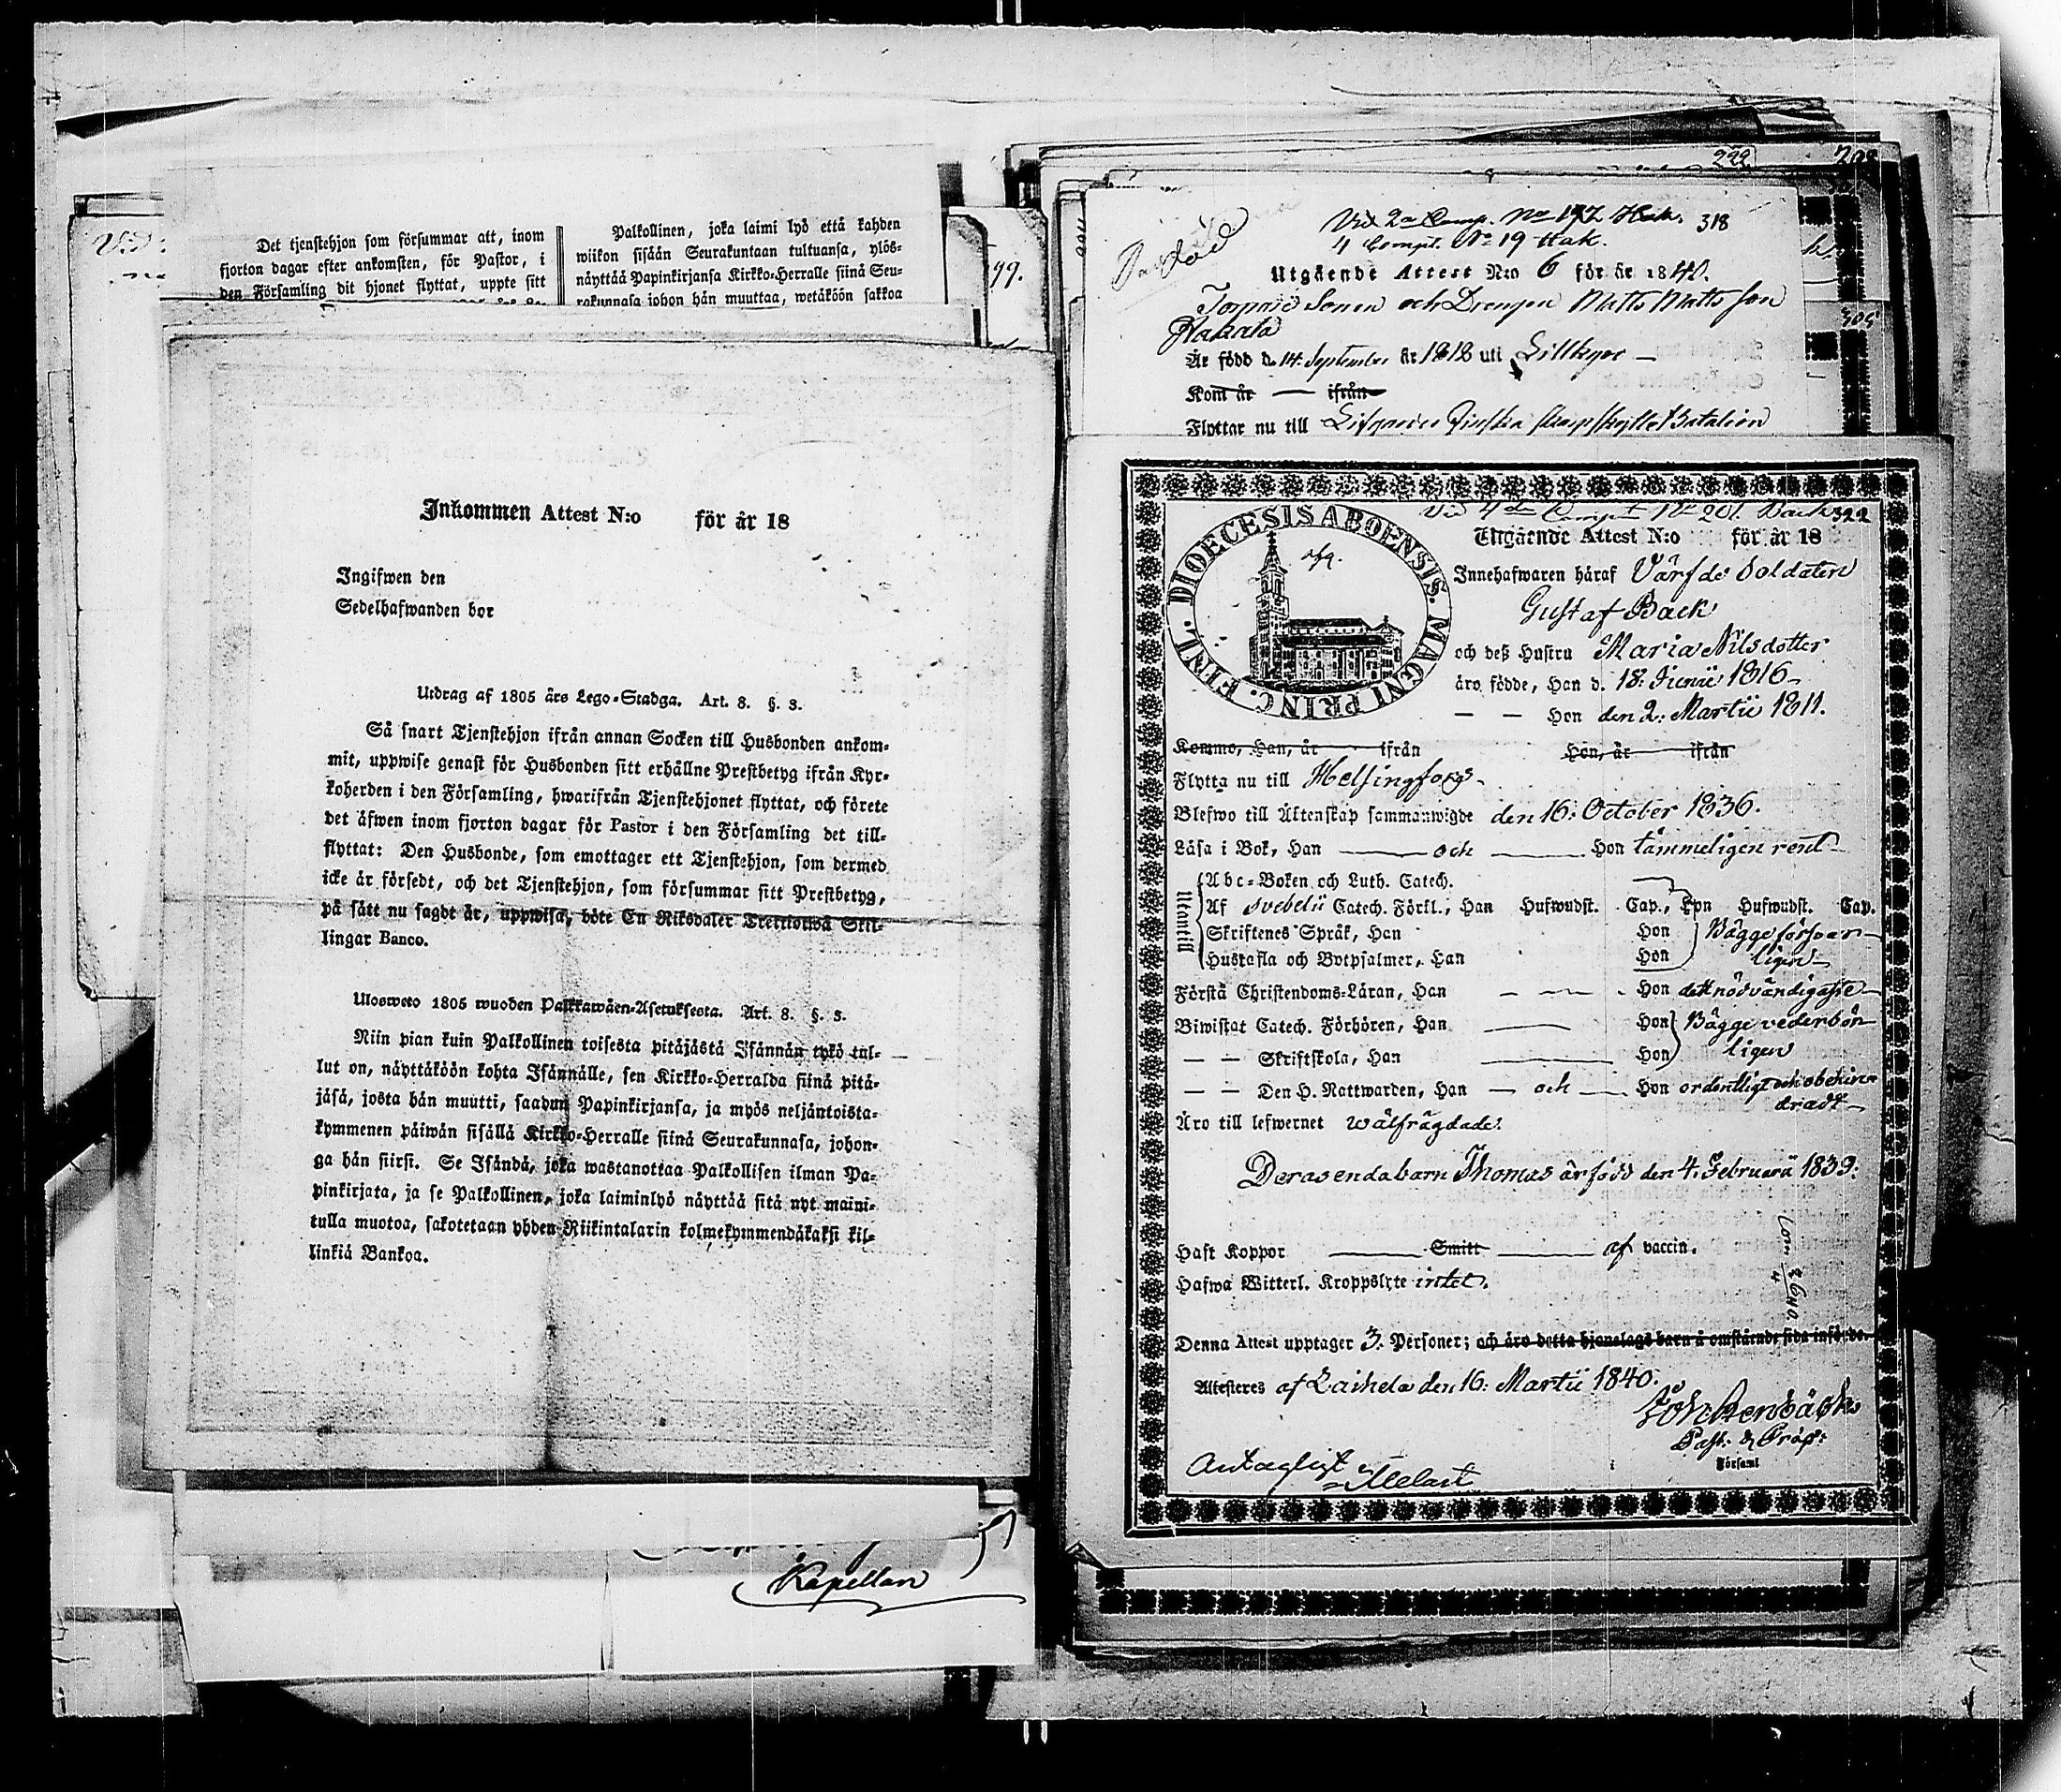 Det tjenstehjon som försummar att, inom
fjorton dagar efter ankomsten, för Pastor, i
den Församling dit hjonet flyttat, uppte sitt
Palkollinen, joka laimi lyö että kahden
wiikon sisään Seurakuntaan tultuansa, ylös-
näyttää Papinkirjansa Kirkko-Herralle siinä Seu-
rakunnasa johon hän muuttaa, wetäköön sakkoa
99.
Inkommen Attest N:o för år 18
Ingifwen den
Sedelhafwanden bor
Utdrag af 1805 års Lego-Stadga. Art. 8. §. 3.
Så snart Tjenstehjon ifrån annan Socken till Husbonden ankom-
mit, uppwise genast för Husbonden sitt erhållne Prestbetyg ifrån Kyr-
koherden i den Församling, hwarifrån Tjenstehjonet flyttat, och förete
det äfwen inom fjorton dagar för Pastor i den Församling det till-
flyttat: Den Husbonde, som emottager ett Tjenstehjon, som dermed
icke är försedt, och det Tjenstehjon, som försummar sitt Prestbetyg,
på sätt nu sagdt är, uppwisa, böte En Riksdaler Trettiotwå Skil-
lingar Banco.
Ulosweto 1805 wuoden Palkkawäen-Asetuksesta. Art. 8. §. 3.
Niin pian kuin Palkollinen toisesta pitäjästä Isännän tykö tul-
lut on, näyttäköön kohta Isännälle, sen Kirkko-Herralda siinä pitä-
jäsä, josta hän muutti, saadun Papinkirjansa, ja myös neljäntoista-
kymmenen päiwän sisällä Kirkko-Herralle siinä Seurakunnasa, johon-
ga hän siirsi. Se Isändä, joka wastanottaa Palkollisen ilman Pa-
pinkirjata, ja se Palkollinen, joka laiminlyö näyttää sitä nyt maini-
tulla muotoa, sakotetaan yhden Riikintalarin kolmekymmendäkaksi kil-
linkiä Bankoa.
Kapellan
222
Vid 2a Comp. No 197 Hak. 318
4 Compt. No 19 Hak.
Utgående Attest N:o 6 för år 1840.
Sonen och Drengen Matts Mattsson
Är född d. 14. September år 1818 uti Lillkyro
Kom år — ifrån
Flyttar nu till Lifgardes Finska Skarpskytte Batalion
Vid 4de Compt No 201 Back 322
Utgående Attest N:o för år 18
DIOECESIS ABOENSIS. MAGNI PRINC. FINL.
afg.
Innehafwaren häraf Värfde Soldaten
Gustaf Back
och deß Hustru Maria Nilsdotter
äro födde, Han d. 18. Junii 1816
— — Hon den 2. Martii 1811.
Kommo, Han, år ifrån Hon, år ifrån
Flytta nu till Helsingfors
Blefwo till Äktenskap sammanwigde den 16. October 1836.
Läsa i Bok, Han — och — Hon tämmeligen rent
Utantill
Abc-Boken och Luth. Catech.
Af Svebelii Catech. Förkl., Han Hufwudst. Cap., Hon Hufwudst. Cap.
Skriftenes Språk, Han Hon Bägge försvar-
Hustafla och Botpsalmer, Han Hon ligen
Förstå Christendoms-Läran, Han — — Hon det nödvändigaste
Biwistat Catech. Förhören, Han — Hon Bägge vederbör-
— — Skriftskola, Han — Hon ligen
— — Den H. Nattwarden, Han — och — Hon ordentligt och obehin-
dradt
Äro till lefwernet wälfrägdade.
Deras enda barn Thomas är född den 4. Februarii 1839.
Haft Koppor — Smitt — af vaccin.
Hafwa Witterl. Kroppslyte intet.
Denna Attest upptager 3. Personer; och äro detta hjonelags barn å omstående sida införde.
Attesteras af Laihela den 16. Martii 1840.
Past. & Präp.
Församl